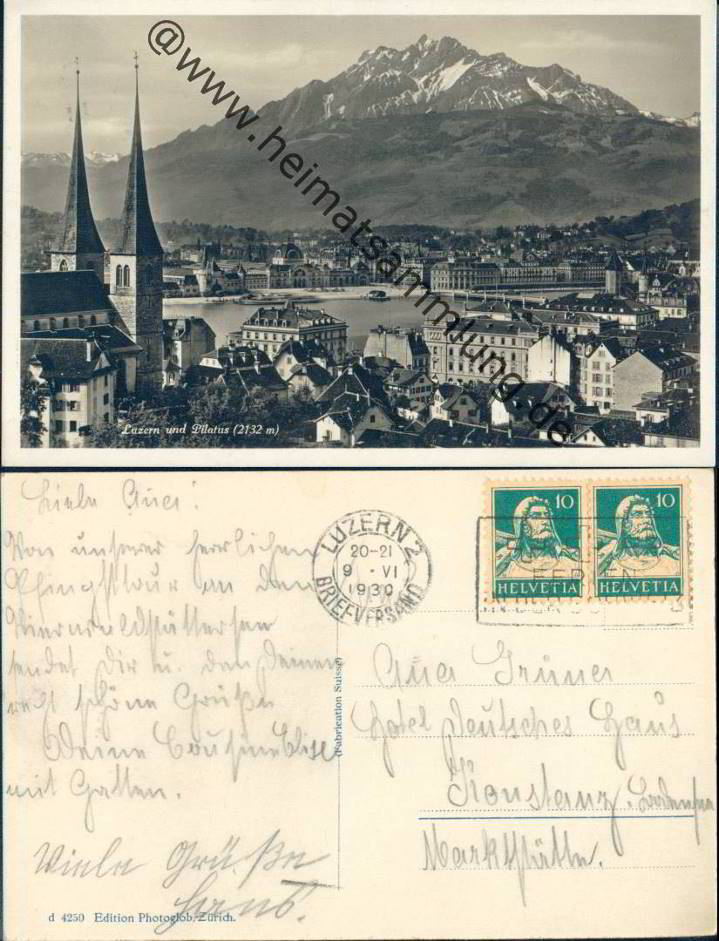 @www.heimatsammlung.de
Luzern und Pilatus (2132 m)
Liebe
Von unserer herrlichen
Pfingsttour an den
Vierwaldstättersee
sendet Dir u. den Deinen
recht schöne Grüße
Deine Cousine Elise
mit Gatten.
Viele Grüße
Hans.
d 4250 Edition Photoglob, Zürich.
(Fabrication Suisse)
LUZERN 2
20-21
9 · VI
1930
BRIEFVERSAND
10 10
HELVETIA HELVETIA
Grüner
Hotel Deutsches Haus
Konstanz, Bodensee
Marktstätte.